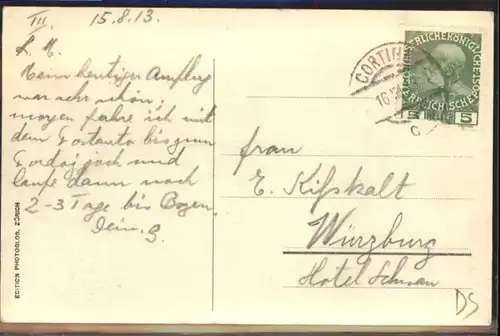 III. 15.8.13.
L. M.
Mein heutiger Ausflug
war sehr schön,
morgen fahre ich mit
dem Postauto bis zum
Pordoj joch und
laufe dann noch
2-3 Tage bis Bozen.
Dein
EDITION PHOTOGLOB, ZÜRICH
CORTIN
16
C
5 5
Frau
E. Kißkalt
Würzburg
Hotel Schwan
DS